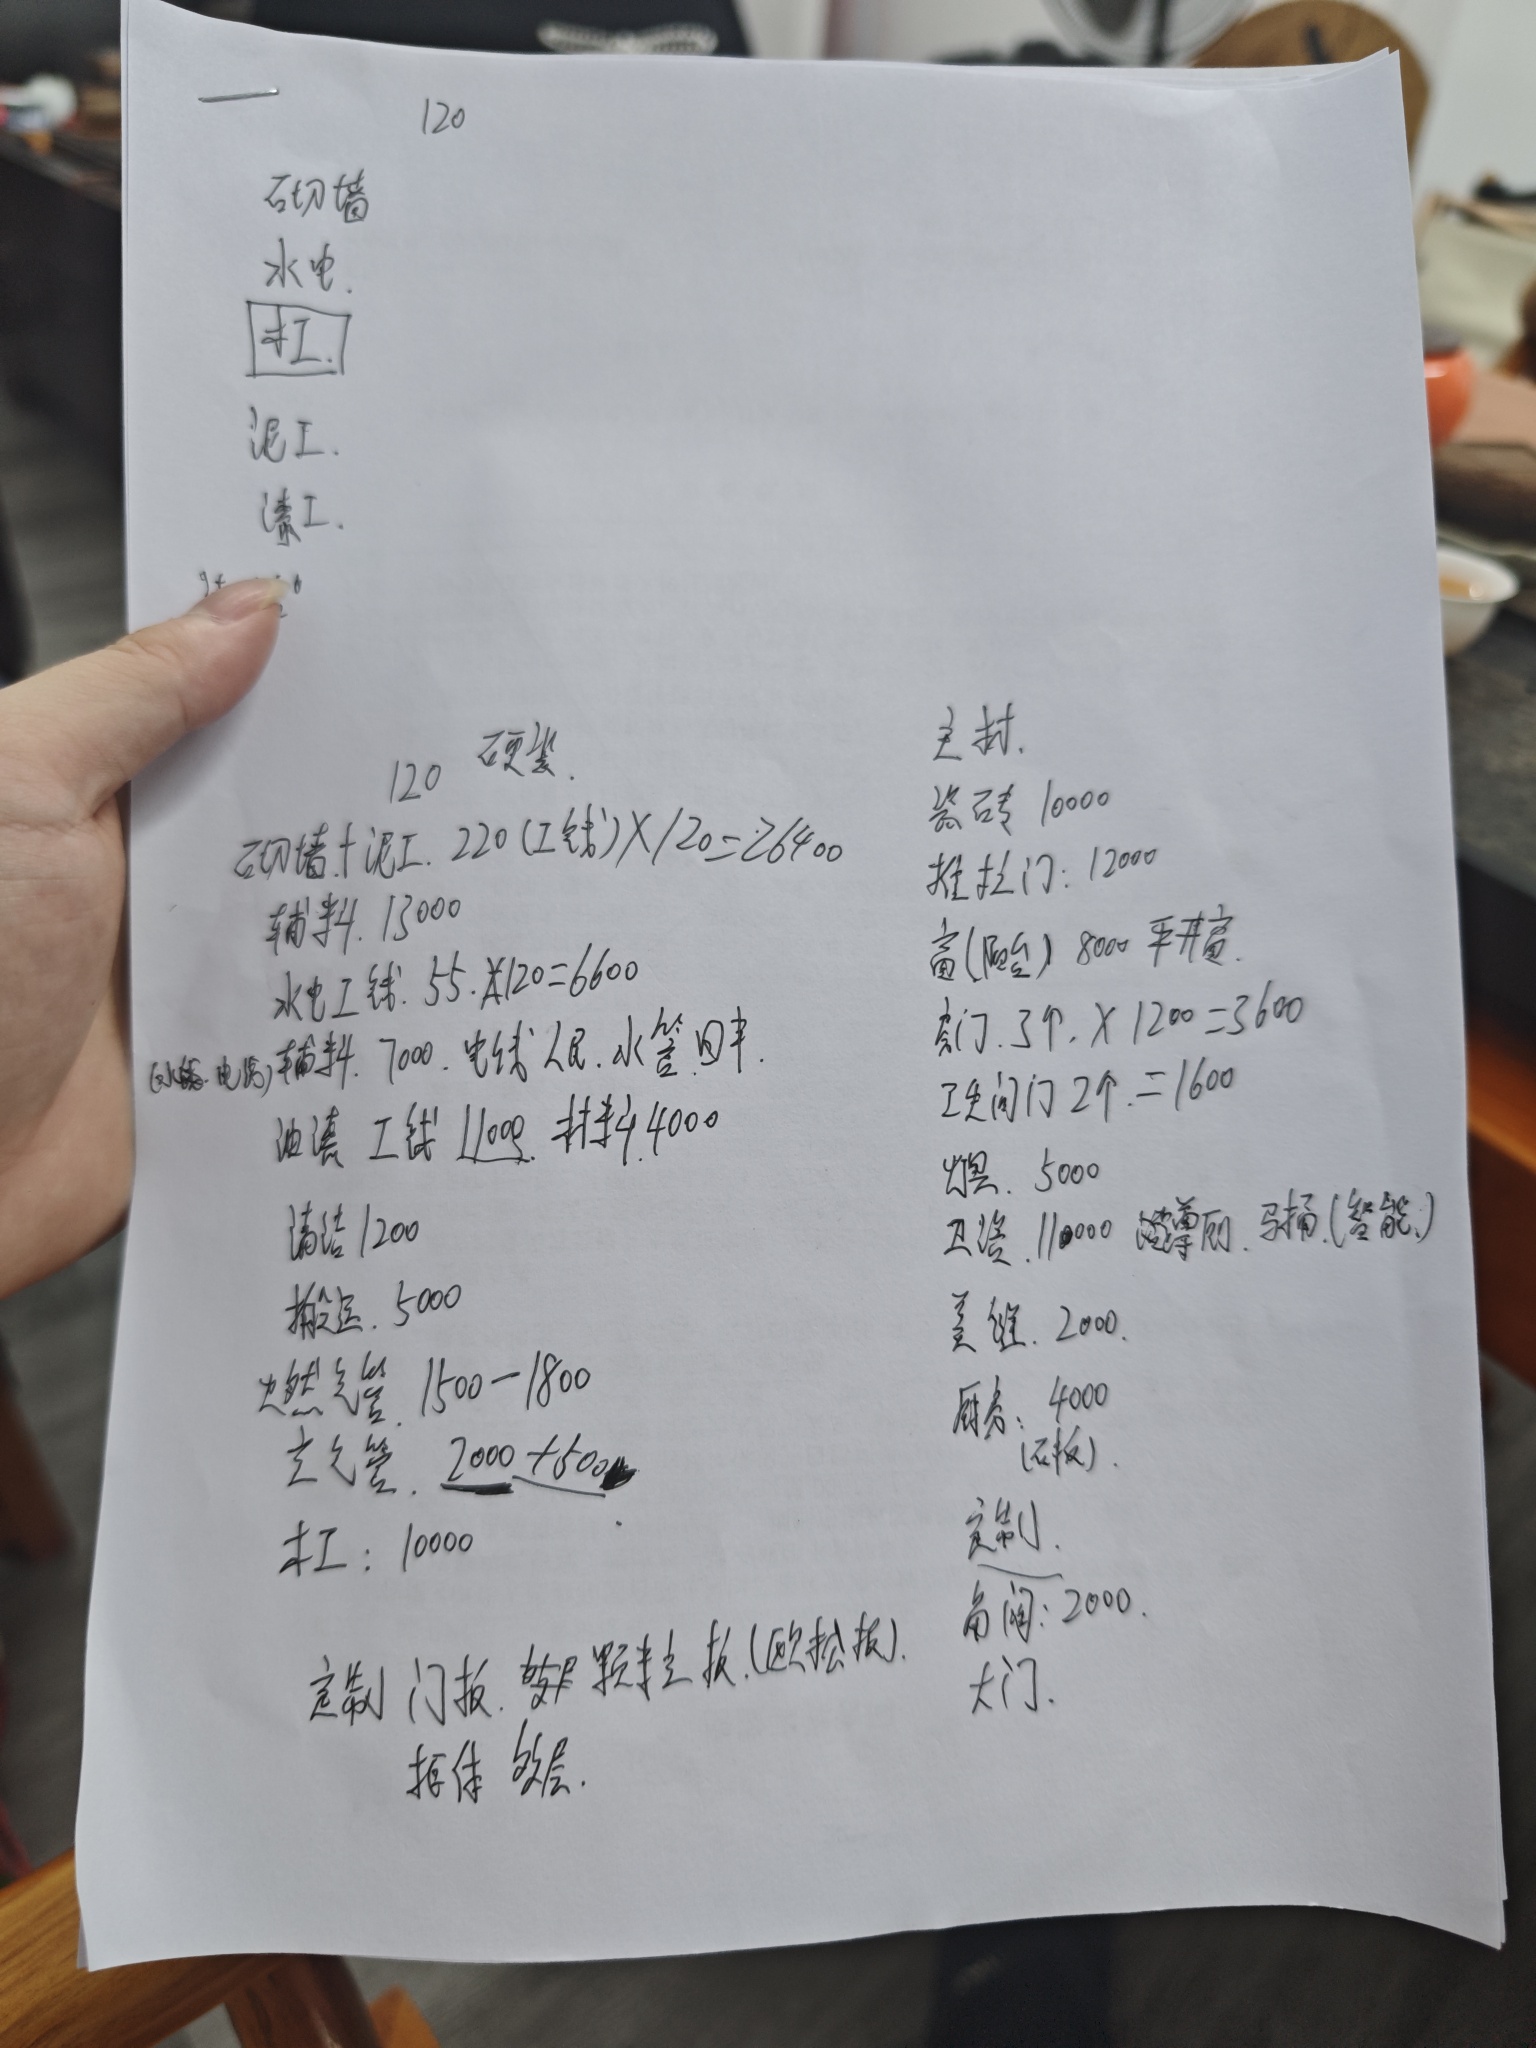 120
砌墙
水电.
木工.
泥工.
漆工.
120 硬装.
砌墙.+泥工. 220(工钱)X120=26400
辅料. 13000
水电工钱. 55.X120=6600
辅料. 7000. 电线人民. 水管.日丰.
油漆 工钱 11000. 材料. 4000
清洁 1200
搬运. 5000
燃气管. 1500-1800
空气管. 2000+500
木工: 10000
定制 门板. 颗粒板.(欧松板).
柜体 多层.
主材.
瓷砖 10000
推拉门: 12000
窗(阳台) 8000 平开窗.
房门. 3个. X 1200=3600
卫生间门 2个.=1600
灯具. 5000
卫浴. 11000 马桶.(智能.)
美缝. 2000.
厨房: 4000
(石板).
定制.
房间: 2000.
大门.